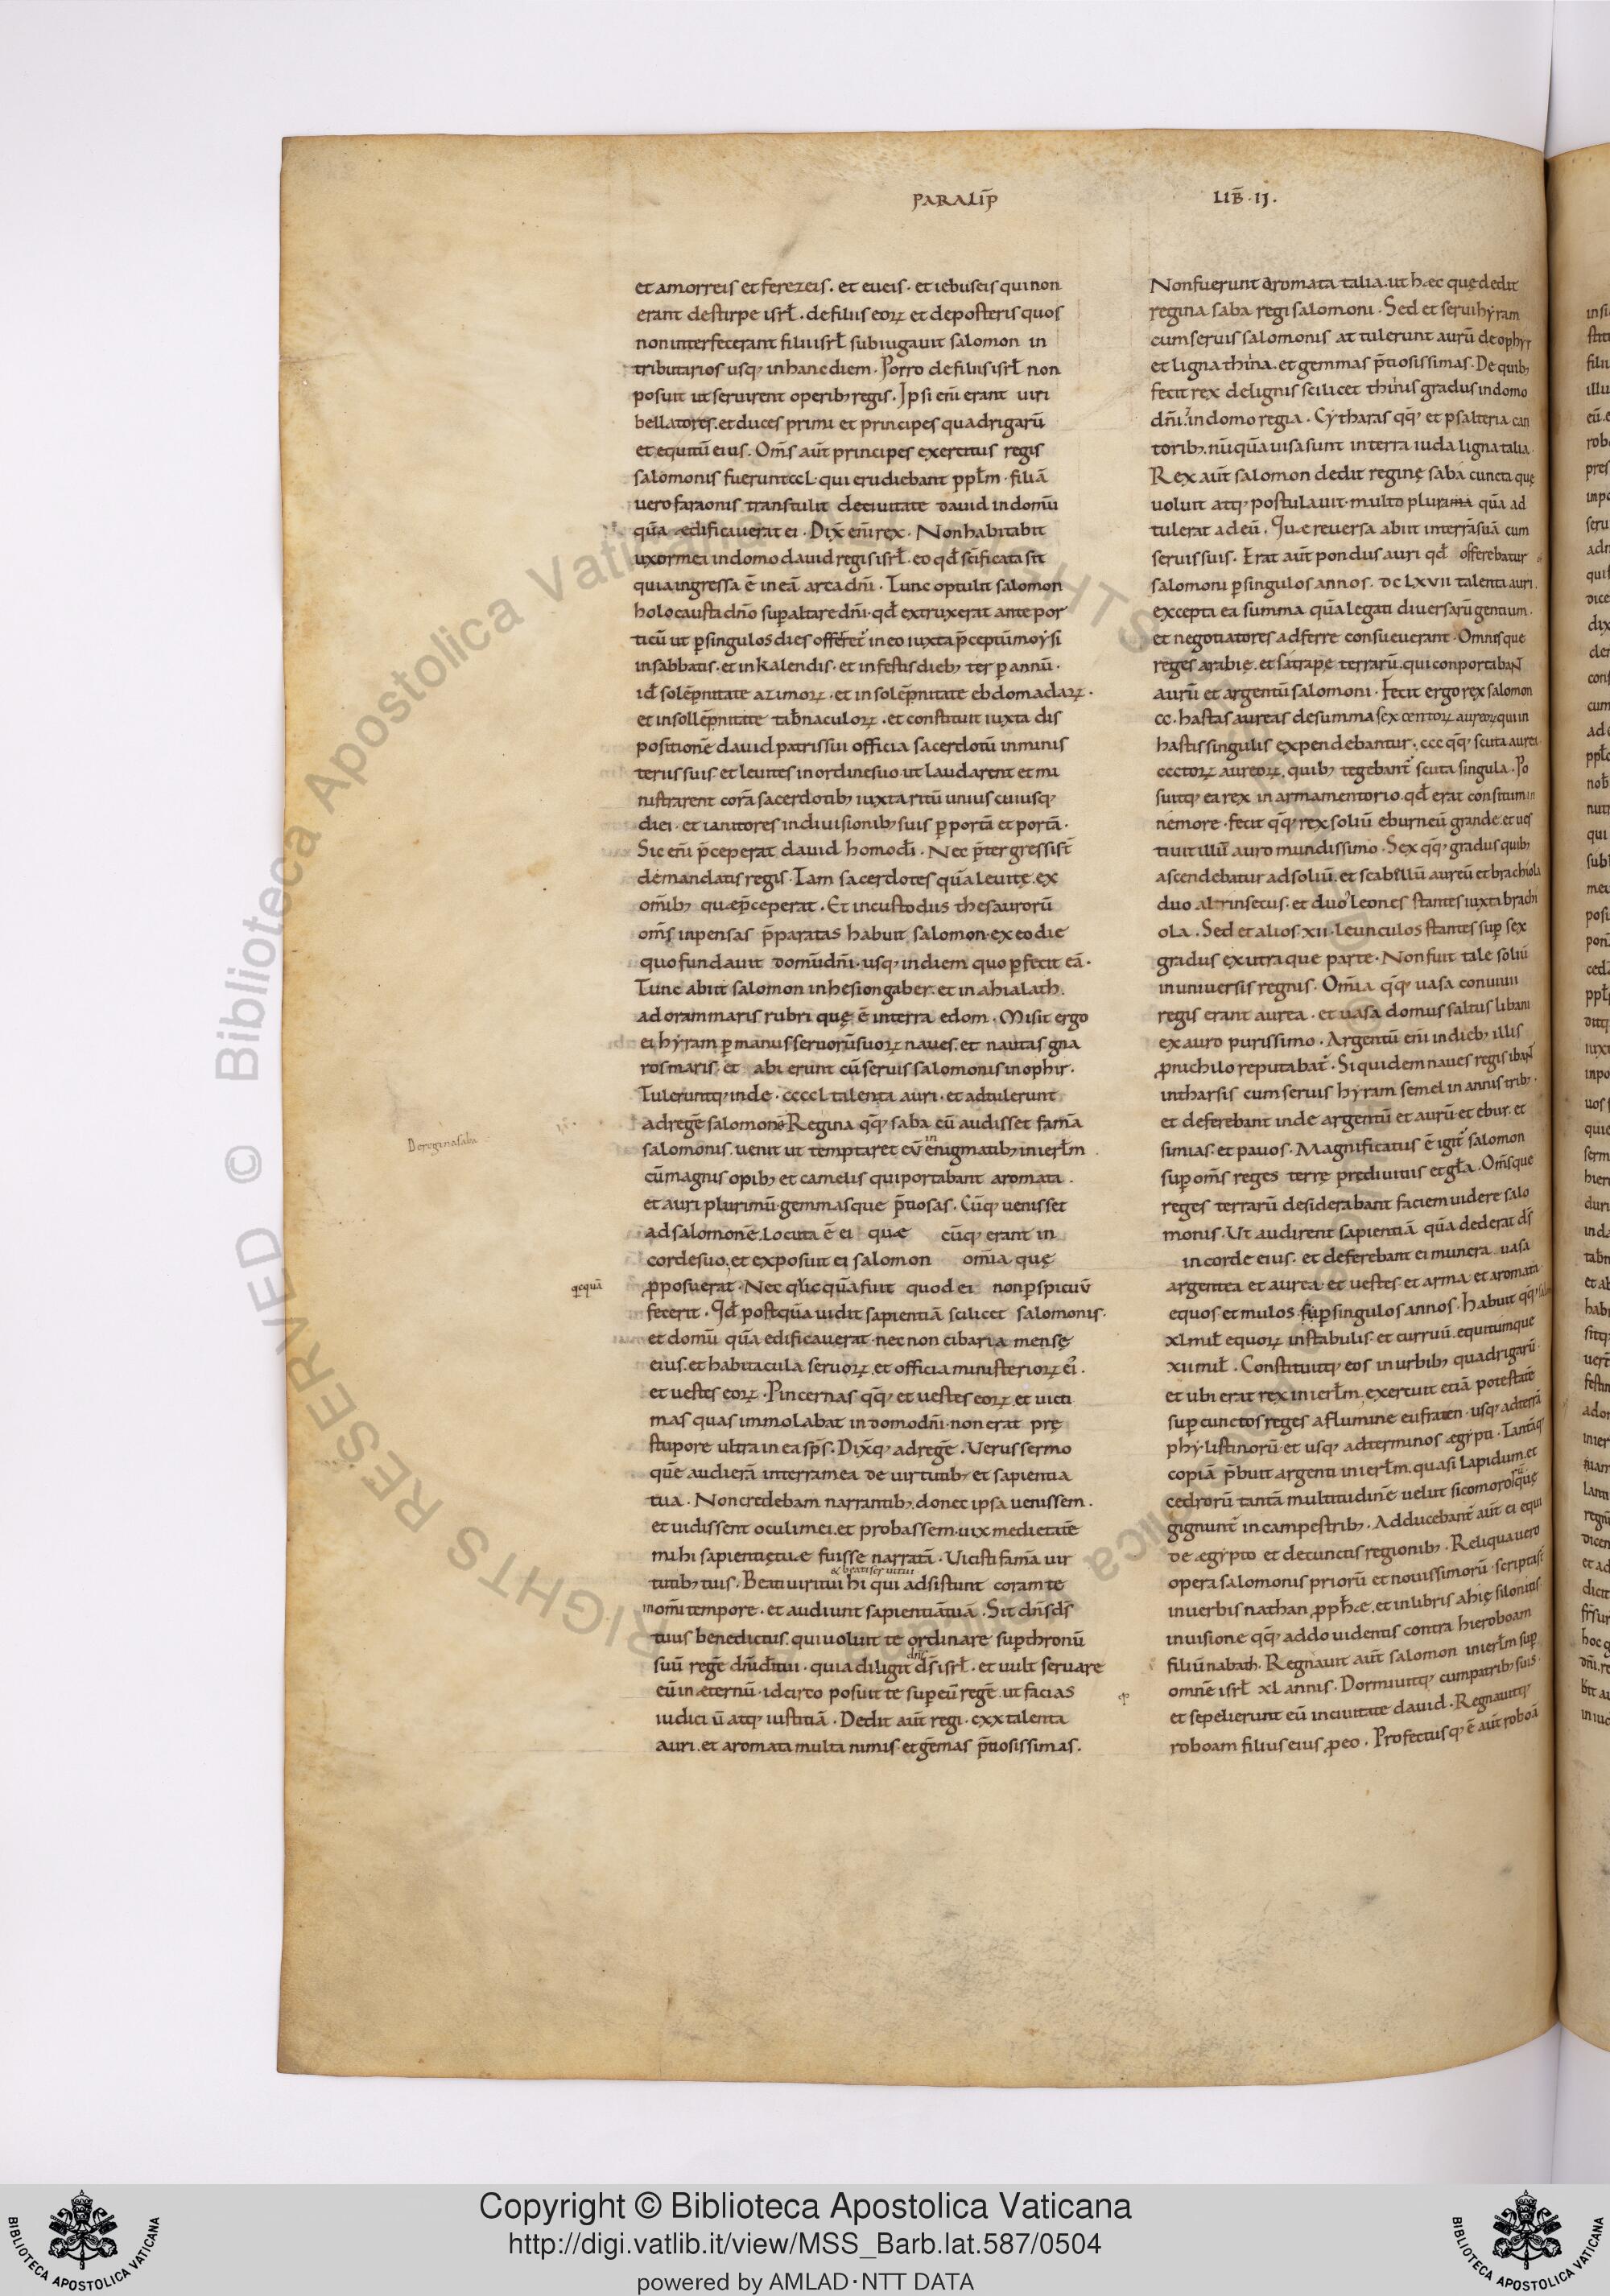 PARALIP̄ LIB̄ · II ·
et amorreis et ferezeis . et eueis . et iebuseis qui non
erant de stirpe isrł . de filiis eoꝝ et de posteris quos
non interfecerant filii isrł subiugauit salomon in
tributarios usq; in hanc diem . Porro de filiis isrł non
posuit ut seruirent operib; regis . Ipsi eni̅ erant uiri
bellatores . et duces primi et principes quadrigarū
et equitū eius . Om̅s aut̅ principes exercitus regis
salomonis fuerunt ccl · qui erudiebant ppłm · filiā
uero faraonis transtulit de ciuitate dauid in domū
quā ædificauerat ei . Dix̅ eni̅ rex . Non habitabit
uxor mei in domo dauid regis isrł . eo qđ sc̅ificata sit
quia ingressa ē in eā arca dn̅i . Tunc optulit salomon
holocausta dn̅o sup altare dn̅i · qđ extruxerat ante por
ticū ut ꝑ singulos dies offeret᷑ in eo iuxta p̅ceptū moẏsi
in sabbatis . et in kalendis . et in festis dieb; ter ꝑ annū .
id̅ solēpnitate azimoꝝ . et in solēpnitate ebdomadaꝝ .
et in sollēpnitate tab̅naculoꝝ . et constituit iuxta dis
positionē dauid patris sui officia sacerdotū in minis
teriis suis . et leuites in ordine suo . ut laudarent et mi
nistrarent corā sacerdotib; iuxta ritū unius cuiusq;
diei . et ianitores in diuisionib; suis ꝑ portā et portā .
Sic eni̅ p̅ceperat dauid homo dī . Nec p̅tergressi st̅
de mandatis regis . Tam sacerdotes quā leuitę . ex
om̅ib; quæ p̅ceperat . Et in custodiis thesaurorū
om̅s inpensas p̅paratas habuit salomon . ex eo die
quo fundauit domū dn̅i . usq; in diem quo ꝑfecit eā .
Tunc abiit salomon in hesiongaber . et in ahialath .
ad oram maris rubri quę ē in terra edom . Misit ergo
ei hẏram ꝑ manus seruorū suoꝝ naues . et nautas gna
ros maris . et abierunt cū seruis salomonis in ophir .
Tuleruntq; inde . ccccl talenta auri . et adtulerunt
ad regē salomonē Regina qq̅; saba cū audisset famā
salomonis . uenit ut temptaret eū in enigmatib; in ierłm .
cū magnis opib; et camelis qui portabant aromata .
et auri plurimū . gemmasque p̅tiosas . Cūq; uenisset
De regina saba
ad salomonē . locuta ē ei quæ cūq; erant in
corde suo . et exposuit ei salomon om̅ia quę
ꝓposuerat . Nec quā fuit quod ei non ꝑspicuū
fecerit . Qđ postquā uidit sapientiā scilicet salomonis .
et domū quā edificauerat . nec non cibaria mensę
eius . et habitacula seruoꝝ . et officia ministerioꝝ ei᷒ .
et uestes eoꝝ . Pincernas qq̅; et uestes eoꝝ . et uicti
mas quas immolabat in domo dn̅i . non erat pre̜
stupore ultra in ea sp̅s . Dix̅q; ad regē . Uerus sermo
quē audierā in terra mea de uirtutib; et sapientia
tua . Non credebam narrantib; . donec ipsa uenissem .
et uidissent oculi mei . et probassem . uix medietatē
mihi sapientię tuæ fuisse narratā . Uicisti famā uir
tutib; tuis . Beati uiri tui & beati serui tui hi qui adsistunt coram te
in om̅i tempore . et audiunt sapientiā tuā . Sit dn̅s ds̅
tuus benedictus . qui uoluit te ordinare sup thronū
suū regē dn̅i dī tui . quia diligit ds̅ isrł . et uult seruare
eū in æternū . idcirco posuit te sup eū regē . ut facias
iudiciū atq; iustitiā . Dedit aut̅ regi . cxx talenta
auri . et aromata multa nimis . et ge̅mas p̅tiosissimas .
Non fuerunt aromata talia . ut hæc quę dedit
regina saba regi salomoni . Sed et serui hẏram
cum seruis salomonis attulerunt aurū de ophẏr
et ligna thina . et gemmas p̅tiosissimas . De quib;
fecit rex de lignis scilicet thinis gradus in domo
dn̅i . in domo regia . Cẏtharas qq̅; et psalteria can
torib; . nū quā uisa sunt in terra iuda ligna talia .
Rex aut̅ salomon dedit reginę saba cuncta quę
uoluit atq; postulauit . multo plurama quā ad
tulerat ad eū . Quæ reuersa abiit in terrā suā cum
seruis suis . Erat aut̅ pondus auri qđ offerebatur
salomoni ꝑ singulos annos . dclxvii talenta auri .
excepta ea summa quā legati diuersarū gentium .
et negotiatores adferre consueuerant . Omnisque
reges arabię . et satrapę terrarū . qui conportabant
aurū et argentū salomoni . Fecit ergo rex salomon
cc . hastas aureas de summa sexcentoꝝ aureoꝝ qui in
hastis singulis expendebantur . ccc qq̅; scuta aurea
ccctoꝝ aureoꝝ . quib; tegebant᷑ scuta singula . Po
suitq; ea rex in armamentorio . qđ erat consitum in
nemore . fecit qq̅; rex soliū eburneū grande . et ues
tiuit illū auro mundissimo . Sex qq̅; gradus quib;
ascendebatur ad soliū . et scabillū aureū et brachiola
duo altrinsecus . et duo leones stantes iuxta brachi
ola . Sed et alios . xii . leunculos stantes sup sex
gradus ex utraque parte . Non fuit tale soliū
in uniuersis regnis . Om̅ia qq̅; uasa conuiuii
regis erant aurea . et uasa domus saltus libani
ex auro purissimo . Argentū eni̅ in dieb; illis
ꝓ nichilo reputabat᷑ . Siquidem naues regis ibant
in tharsis cum seruis hẏram semel in annis trib; .
et deferebant inde argentū et aurū . et ebur . et
simias . et pauos . Magnificatus ē igit᷑ salomon
sup om̅s reges terrę prediuitiis et głia . Om̅sque
reges terrarū desiderabant faciem uidere salo
monis . Ut audirent sapientiā quā dederat ds̅
in corde eius . et deferebant ei munera uasa
argentea et aurea . et uestes et arma et aromata .
equos et mulos . ꝑ singulos annos . habuit qq̅;
xl mił equoꝝ in stabulis . et curruū . equitumque
xii mił . Constituitq; eos in urbib; quadrigarū .
et ubi erat rex in ierłm . exercuit etiā potestatē
sup cunctos reges a flumine eufraten . usq; ad terrā
phẏlistinorū . et usq; ad terminos ægẏpti . Tantāq;
copiā p̅buit argenti in ierłm . quasi lapidum . et
cedrorū tantā multitudinē uelut sicomororū quę
gignunt᷑ in campestrib; . Adducebant᷑ aut̅ ei equi
de ægẏpto et de cunctis regionib; . Reliqua uero
opera salomonis priorū et nouissimorū . scripta st̅
in uerbis nathan ꝓphæ . et in libris ahię silonitis .
in uisione qq̅; addo uidentis contra hieroboam
filiū nabath . Regnauit aut̅ salomon in ierłm sup
omnē isrł xl annis . Dormiuitq; cum patrib; suis .
et sepelierunt eū in ciuitate dauid . Regnauitq;
roboam filius eius ꝓ eo . Profectusq; ē aut̅ roboā
Copyright © Biblioteca Apostolica Vaticana
http://digi.vatlib.it/view/MSS_Barb.lat.587/0504
powered by AMLAD · NTT DATA
BIBLIOTECA APOSTOLICA VATICANA
BIBLIOTECA APOSTOLICA VATICANA